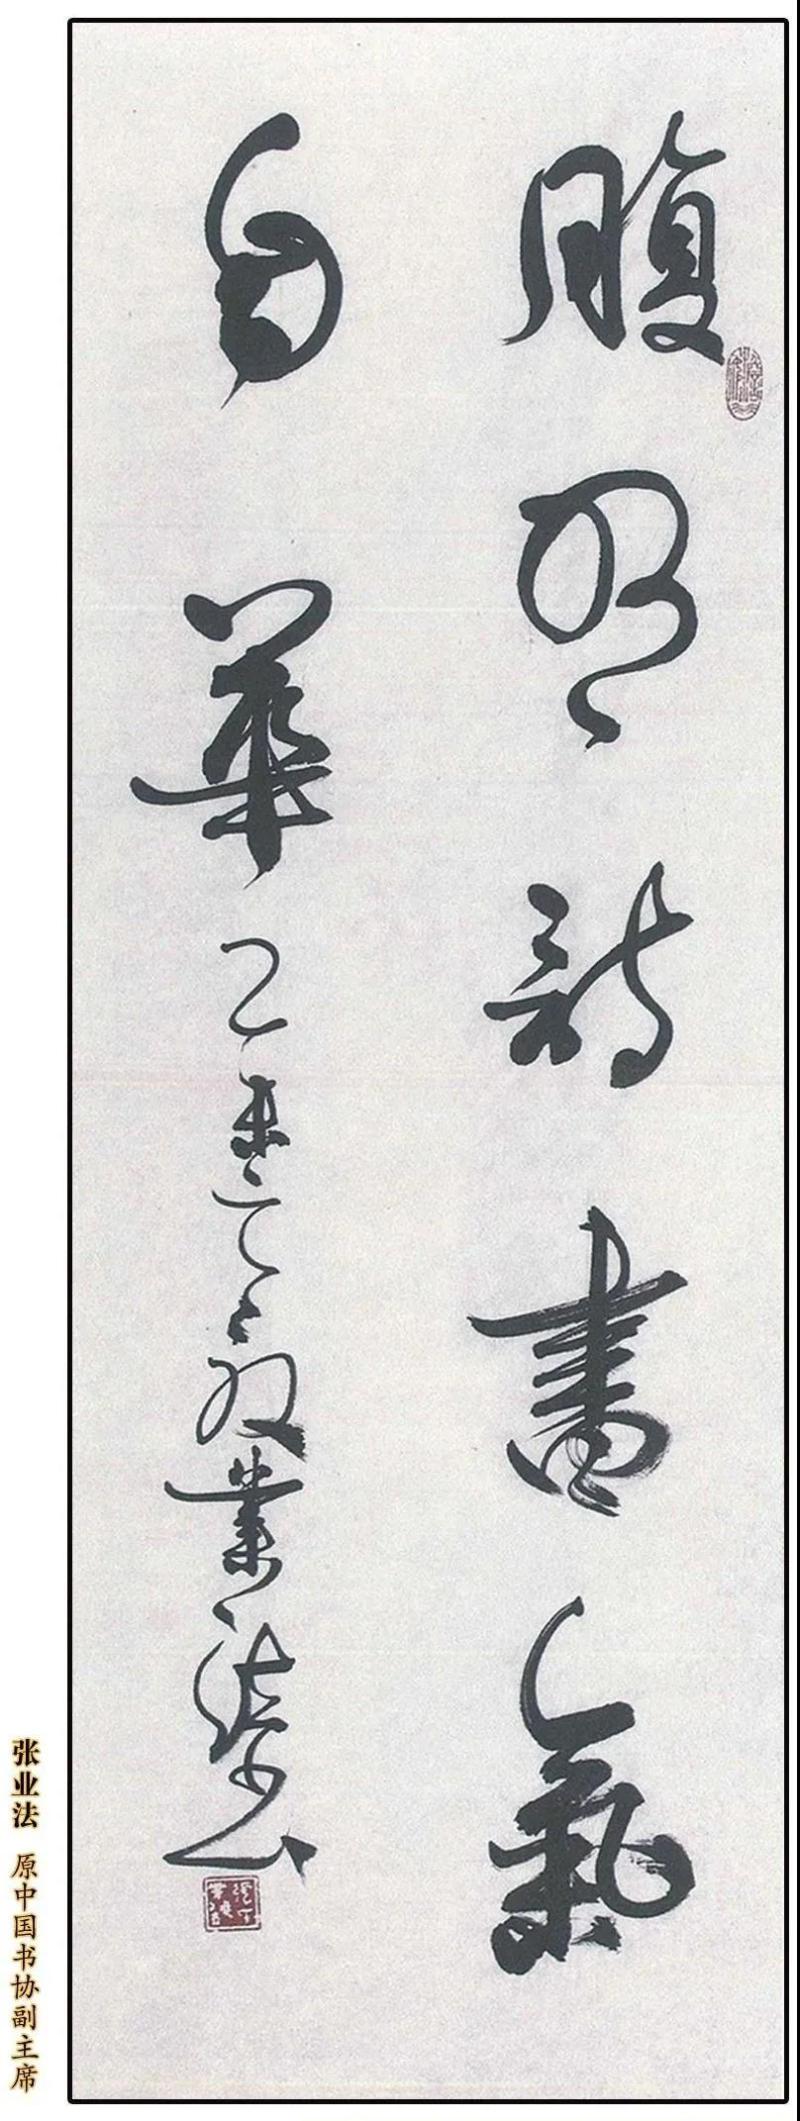 腹有诗書氣
自華 乙未之歌業法書
张业法 原中国书协副主席